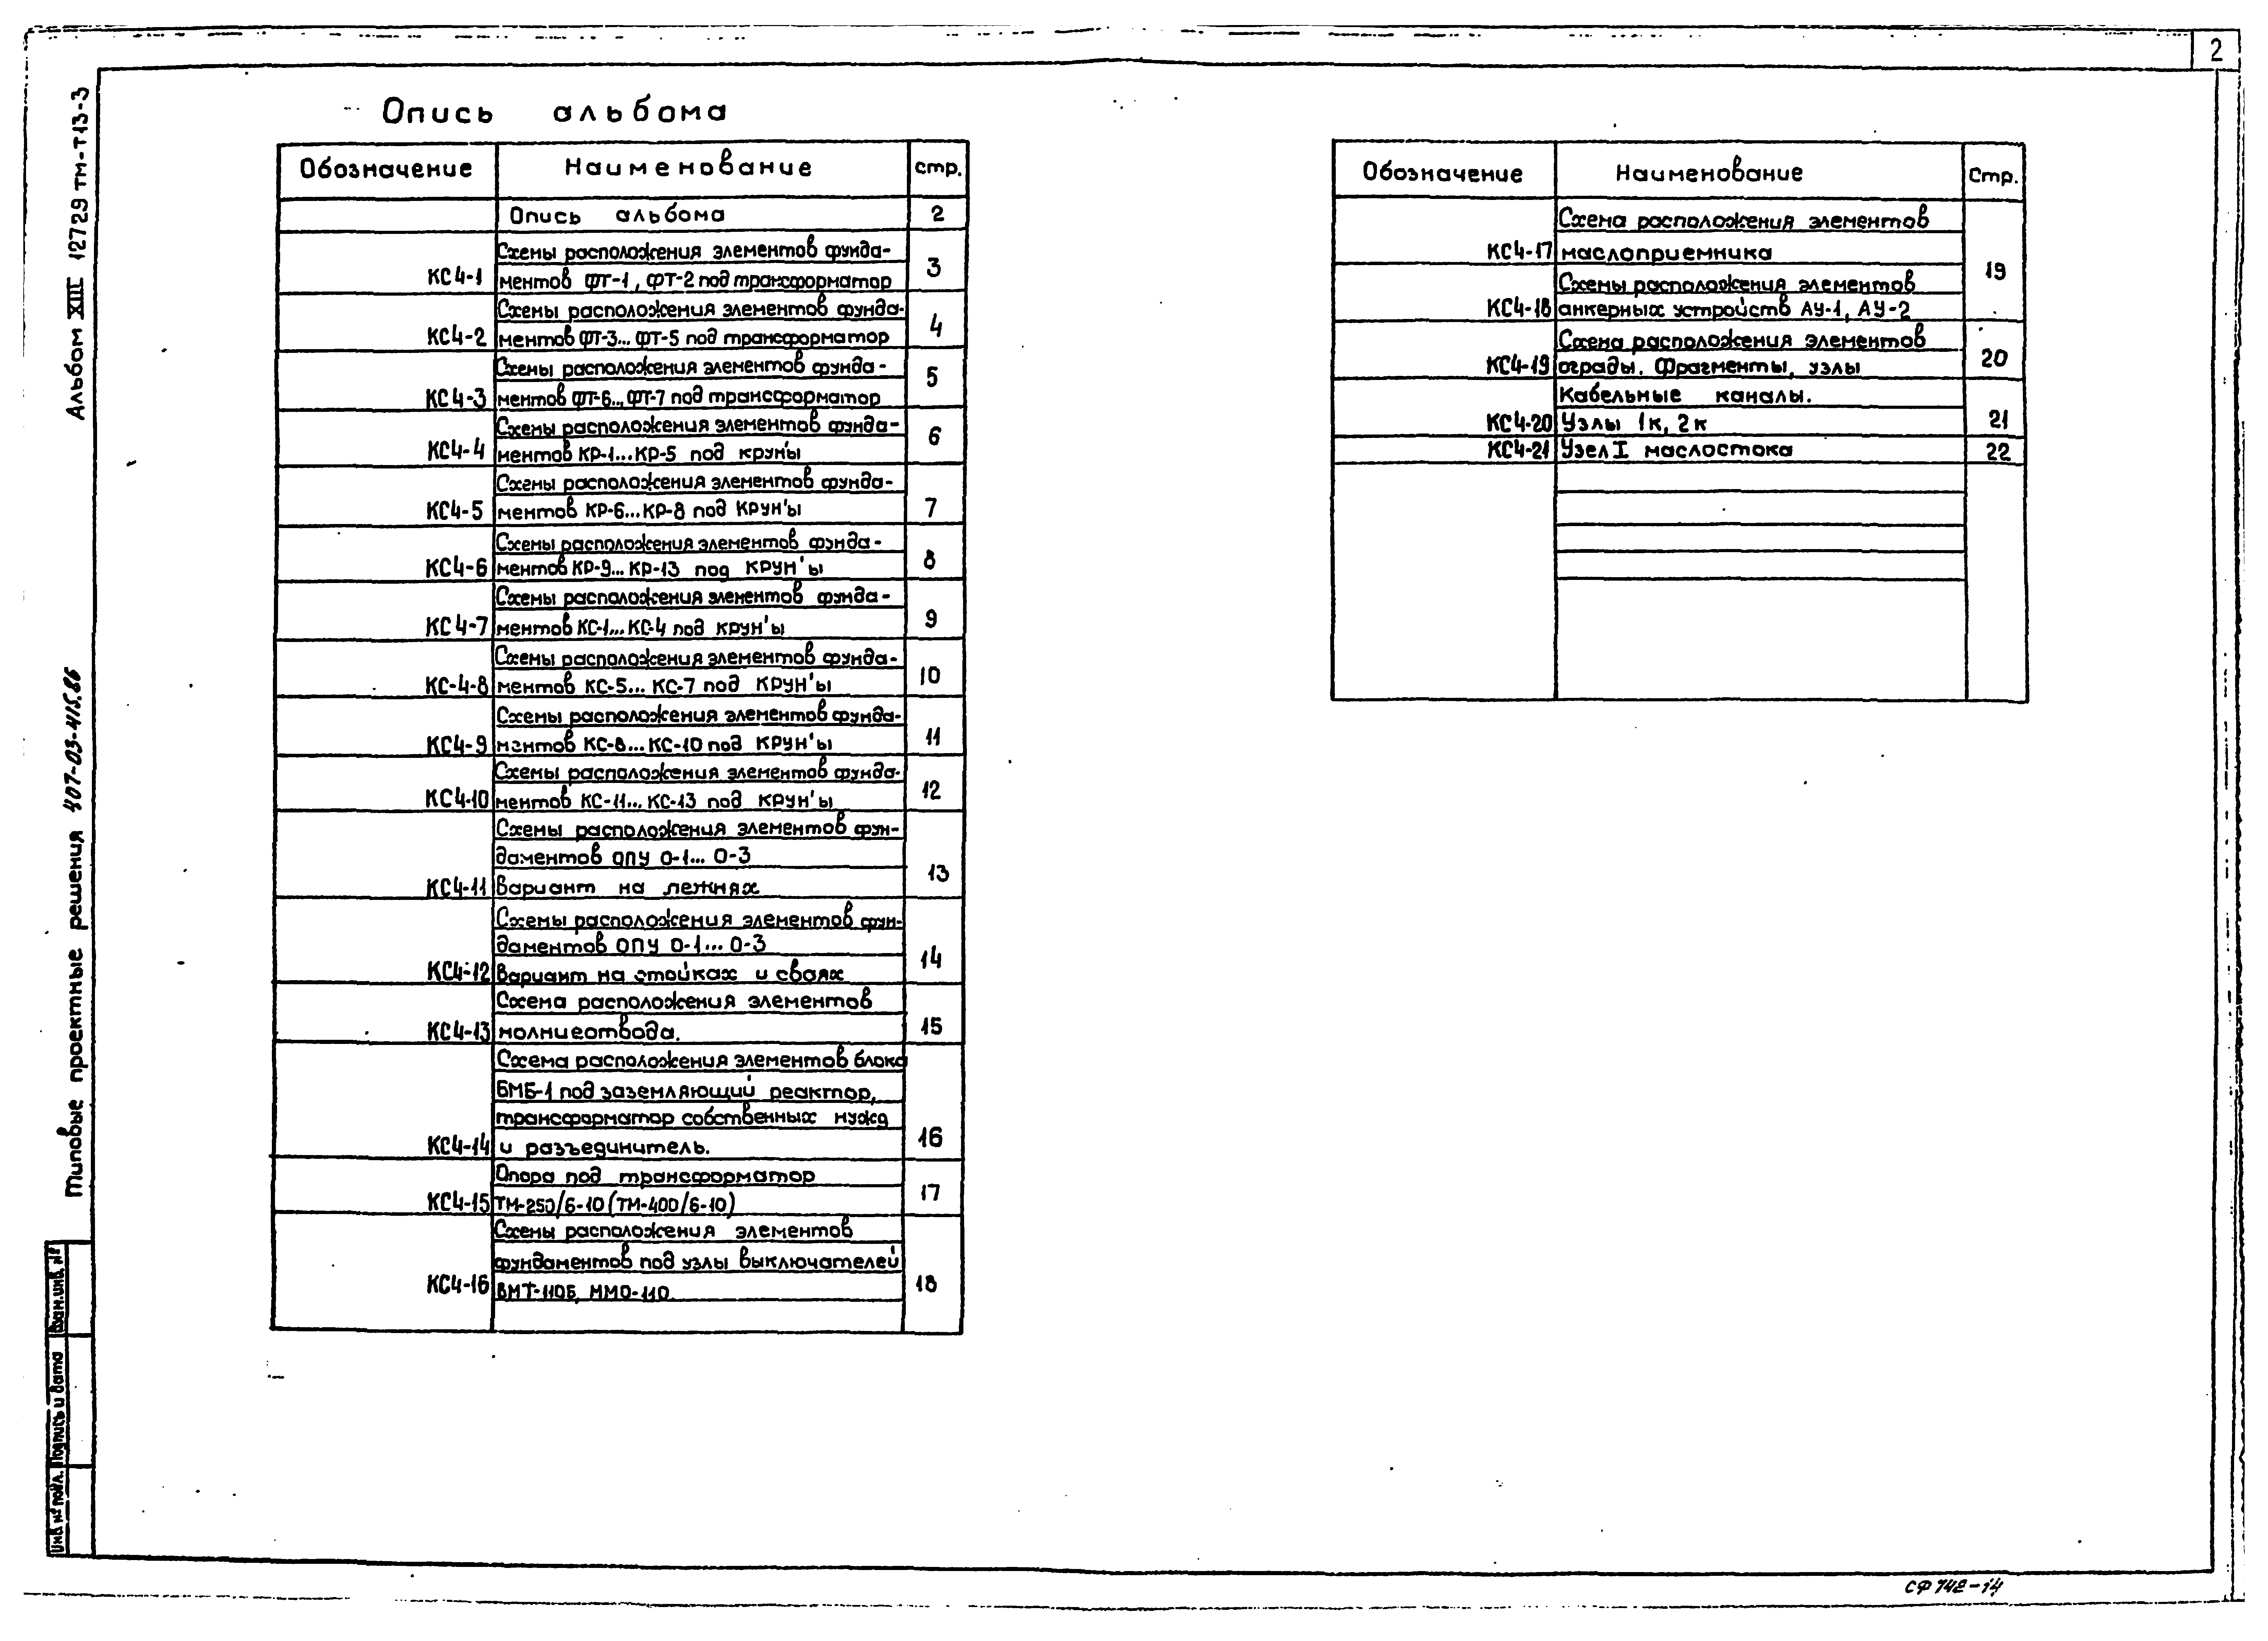 2
Альбом XIII 12729 тм-т13-3
Типовые проектные решения 407-03-415.86
Опись альбома
Обозначение Наименование стр.
Опись альбома 2
Схемы расположения элементов фунда-
КС4-1 ментов ФТ-1, ФТ-2 под трансформатор 3
Схемы расположения элементов фунда-
КС4-2 ментов ФТ-3... ФТ-5 под трансформатор 4
Схемы расположения элементов фунда-
КС4-3 ментов ФТ-6... ФТ-7 под трансформатор 5
Схемы расположения элементов фунда-
КС4-4 ментов КР-1...КР-5 под крун'ы 6
Схемы расположения элементов фунда-
КС4-5 ментов КР-6...КР-8 под КРУН'ы 7
Схемы расположения элементов фунда-
КС4-6 ментов КР-9... КР-13 под КРУН'ы 8
Схемы расположения элементов фунда-
КС4-7 ментов КС-1... КС-4 под крун'ы 9
Схемы расположения элементов фунда-
КС-4-8 ментов КС-5... КС-7 под КРУН'ы 10
Схемы расположения элементов фунда-
КС4-9 ментов КС-8... КС-10 под КРУН'ы 11
Схемы расположения элементов фунда-
КС4-10 ментов КС-11... КС-13 под КРУН'ы 12
Схемы расположения элементов фун-
даментов ОПУ О-1... О-3
КС4-11 Вариант на лежнях 13
Схемы расположения элементов фун-
даментов ОПУ О-1... О-3
КС4-12 Вариант на стойках и сваях 14
Схема расположения элементов
КС4-13 молниеотвода. 15
Схема расположения элементов блока
БМБ-1 под заземляющий реактор,
трансформатор собственных нужд
КС4-14 и разъединитель. 16
Опора под трансформатор
КС4-15 ТМ-250/6-10 (ТМ-400/6-10) 17
Схемы расположения элементов
фундаментов под узлы выключателей
КС4-16 ВМТ-110Б, ММО-110 18
Обозначение Наименование Стр.
Схема расположения элементов
КС4-17 маслоприемника
19
Схемы расположения элементов
КС4-18 анкерных устройств АУ-1, АУ-2
Схема расположения элементов
КС4-19 ограды. Фрагменты, узлы 20
Кабельные каналы.
КС4-20 Узлы 1к, 2к 21
КС4-21 Узел I маслостока 22
Взам. инв. №
Подпись и дата
Инв. № подл.
СФ 742-14